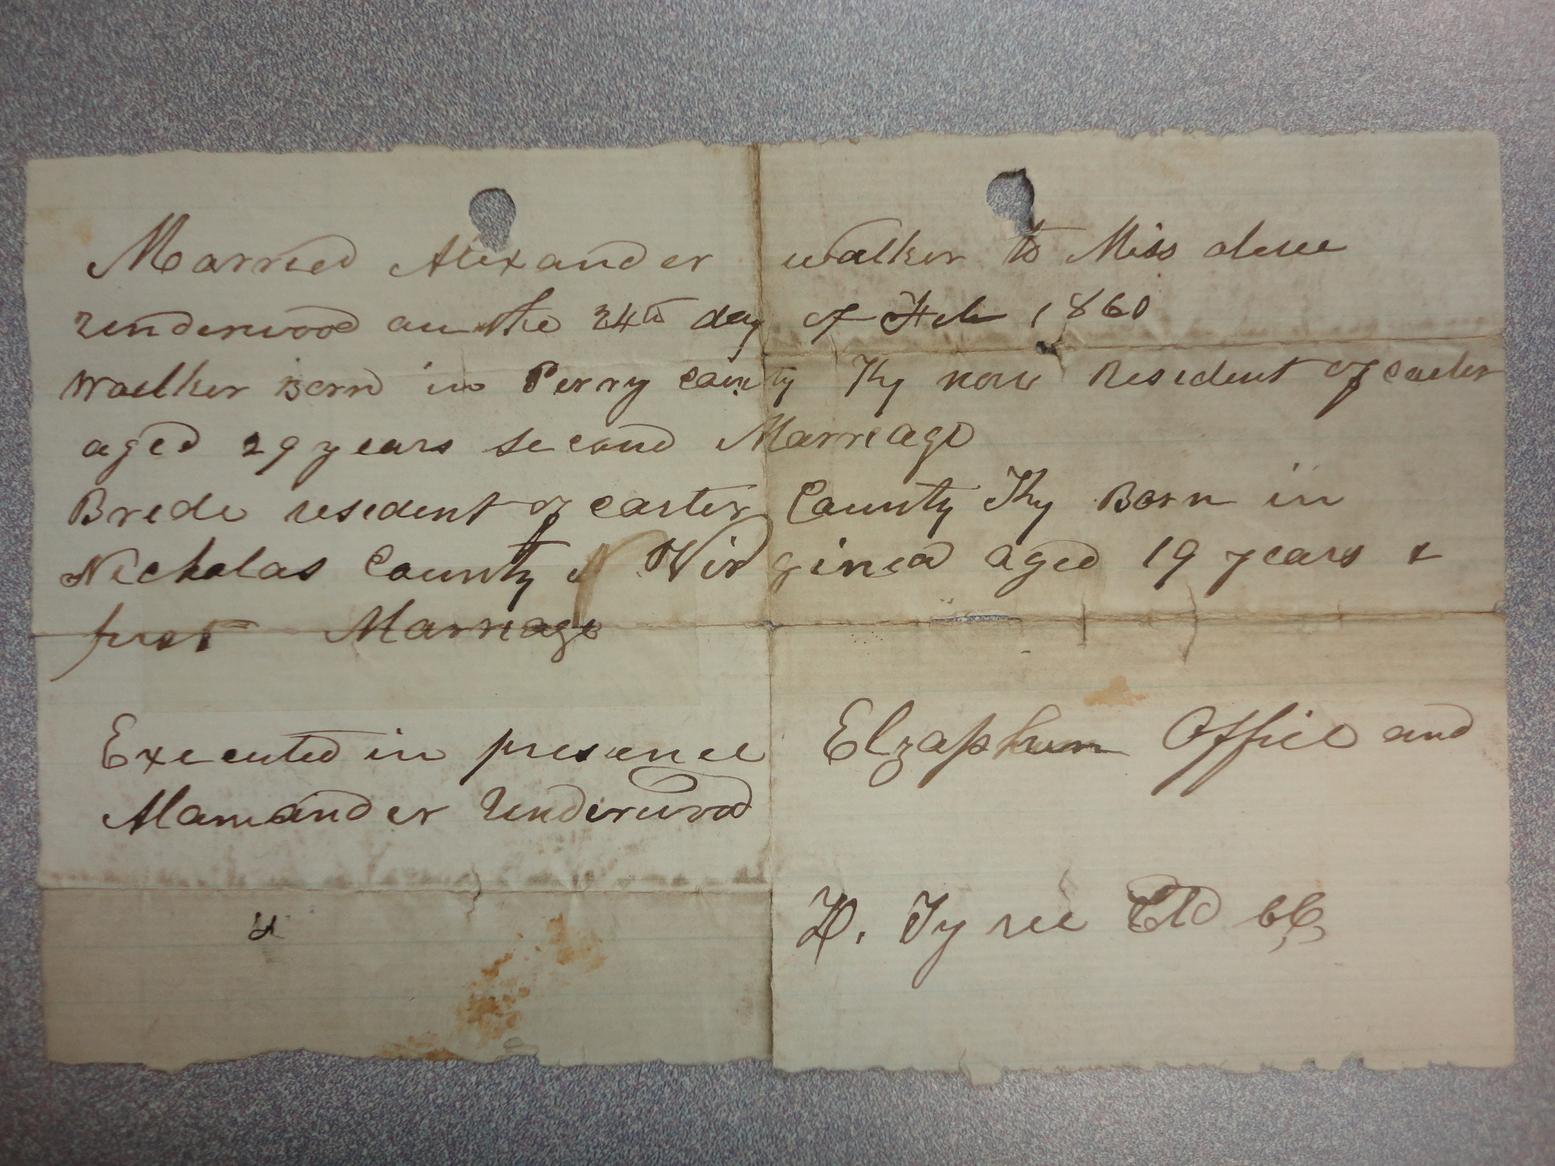 Married Alexander walker to Miss
Underwood an the 24th day of Feb 1860
Walker Born in Perry County Ky now Resident of carter
aged 29 years second Marriage
Brede resedent of carter County Ky Born in
Nickolas County Virginea aged 19 years &
first Marriage
Executed in presence Elzaphun Office and
Underwood
Tyree Eld